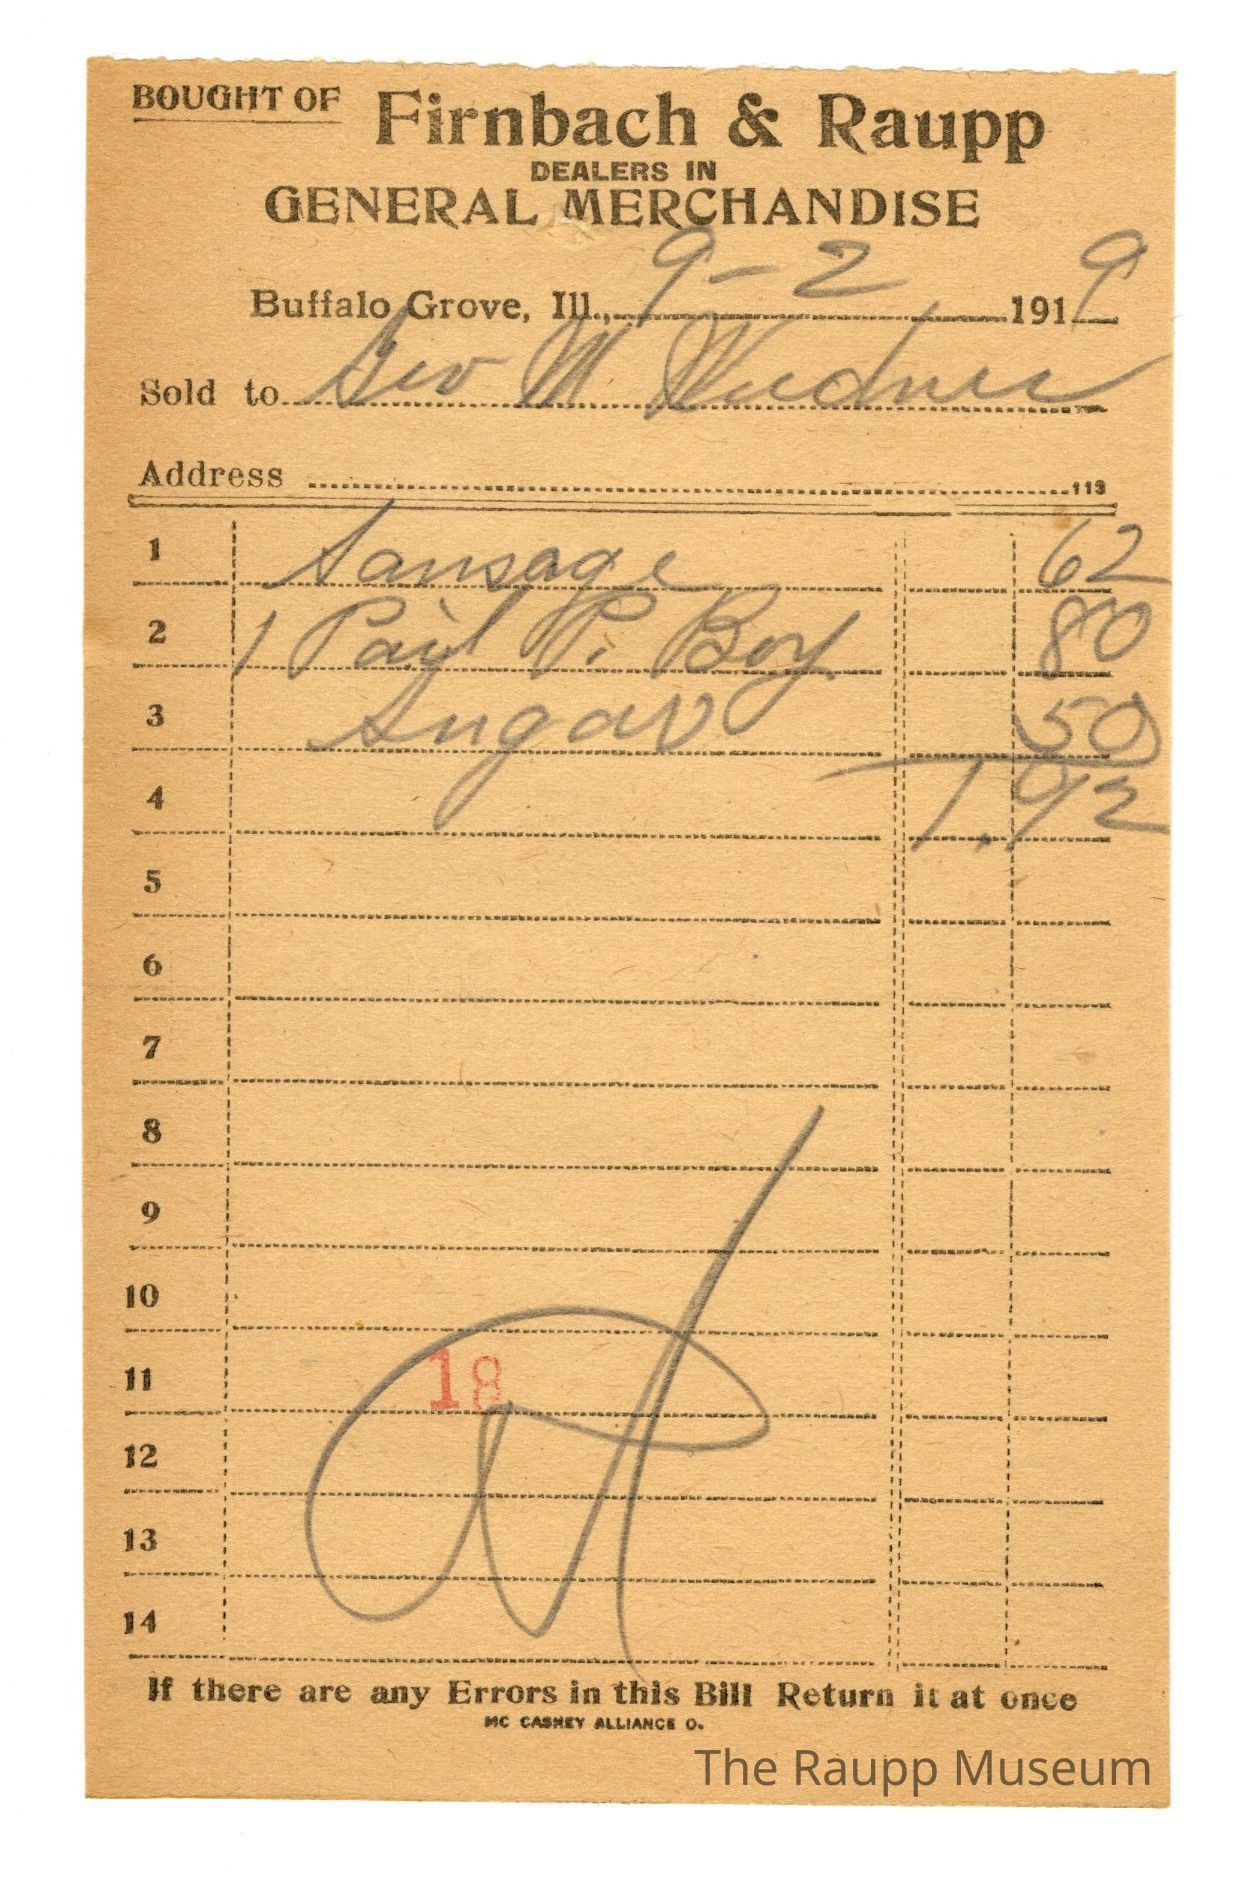 BOUGHT OF Firnbach & Raupp
DEALERS IN
GENERAL MERCHANDISE
Buffalo Grove, Ill., 9-2 1919
Sold to Geo W Weidner
Address 113
1 Sausage 62
2 1 Pail P. Boy 80
3 Sugar 50
4 1.92
5
6
7
8
9
10
11 18
12
13
14
If there are any Errors in this Bill Return it at once
MC CASKEY ALLIANCE O.
The Raupp Museum